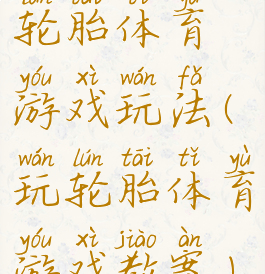 lún tāi tǐ yù
轮胎体育
yóu xì wán fǎ
游戏玩法(
wán lún tāi tǐ yù
玩轮胎体育
yóu xì jiào àn
游戏教案)